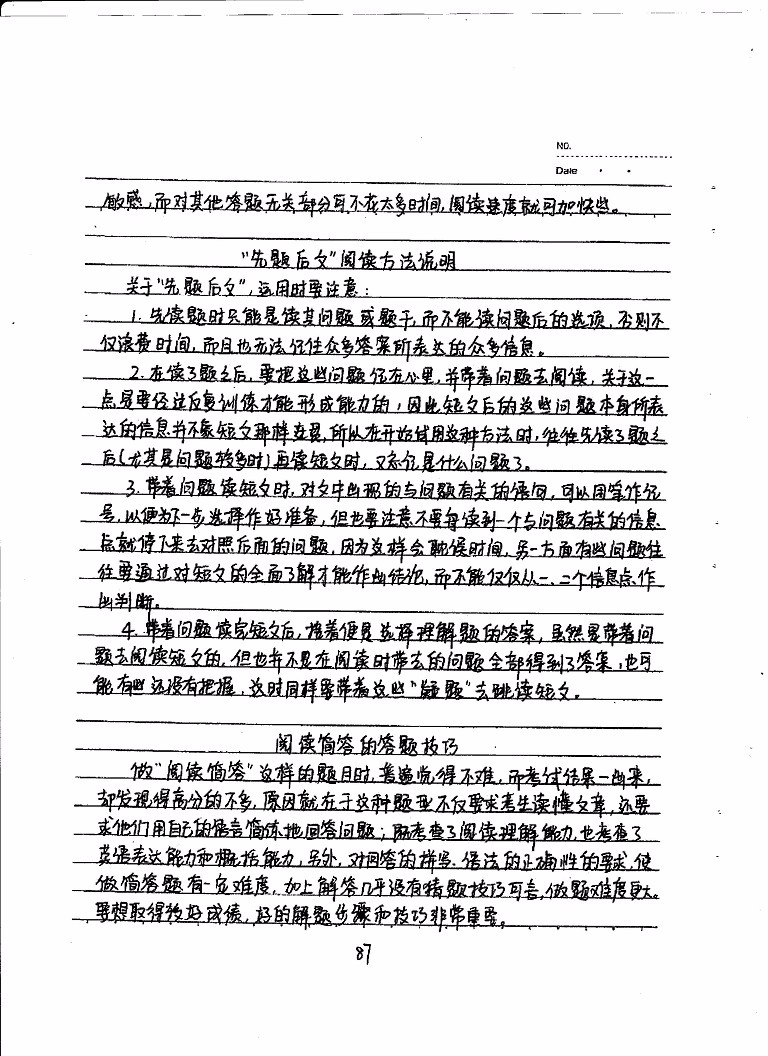 NO.
Date
敏感,而对其他答题无关部分可不花太多时间,阅读速度就可加快些。
"先题后文"阅读方法说明
关于"先题后文",运用时要注意:
1. 先读题时只能是读其问题或题干,而不能读问题后的选项,否则不
仅浪费时间,而且也无法记住众多答案所表达的众多信息。
2. 在读了题之后,要把这些问题记在心里,并带着问题去阅读,关于这一
点是要经过反复训练才能形成能力的,因此短文后的这些问题本身所表
达的信息并不象短文那样连贯,所以在开始试用这种方法时,往往先读了题之
后(尤其是问题较多时)再读短文时,又忘记是什么问题了。
3. 带着问题读短文时,对文中出现的与问题有关的语句,可以用笔作记
号,以便为下一步选择作好准备,但也要注意不要每读到一个与问题有关的信息
点就停下来去对照后面的问题,因为这样会耽误时间,另一方面有些问题往
往要通过对短文的全面了解才能作出结论,而不能仅仅从一、二个信息点作
出判断。
4. 带着问题读完短文后,接着便是选择理解题的答案,虽然是带着问
题去阅读短文的,但也并不是在阅读时带去的问题全部得到了答案,也可
能有些还没有把握,这时同样要带着这些"疑题"去跳读短文。
阅读简答的答题技巧
做"阅读简答"这样的题目时,普遍觉得不难,而考试结果一出来,
却发现得高分的不多,原因就在于这种题型不仅要求考生读懂文章,还要
求他们用自己的语言简体地回答问题;既考查了阅读理解能力,也考查了
英语表达能力和概括能力,另外,对回答的拼写、语法的正确性的要求,使
做简答题有一定难度,加上解答几乎没有猜题技巧可言,做题难度更大。
要想取得较好成绩,好的解题步骤和技巧非常重要。
87